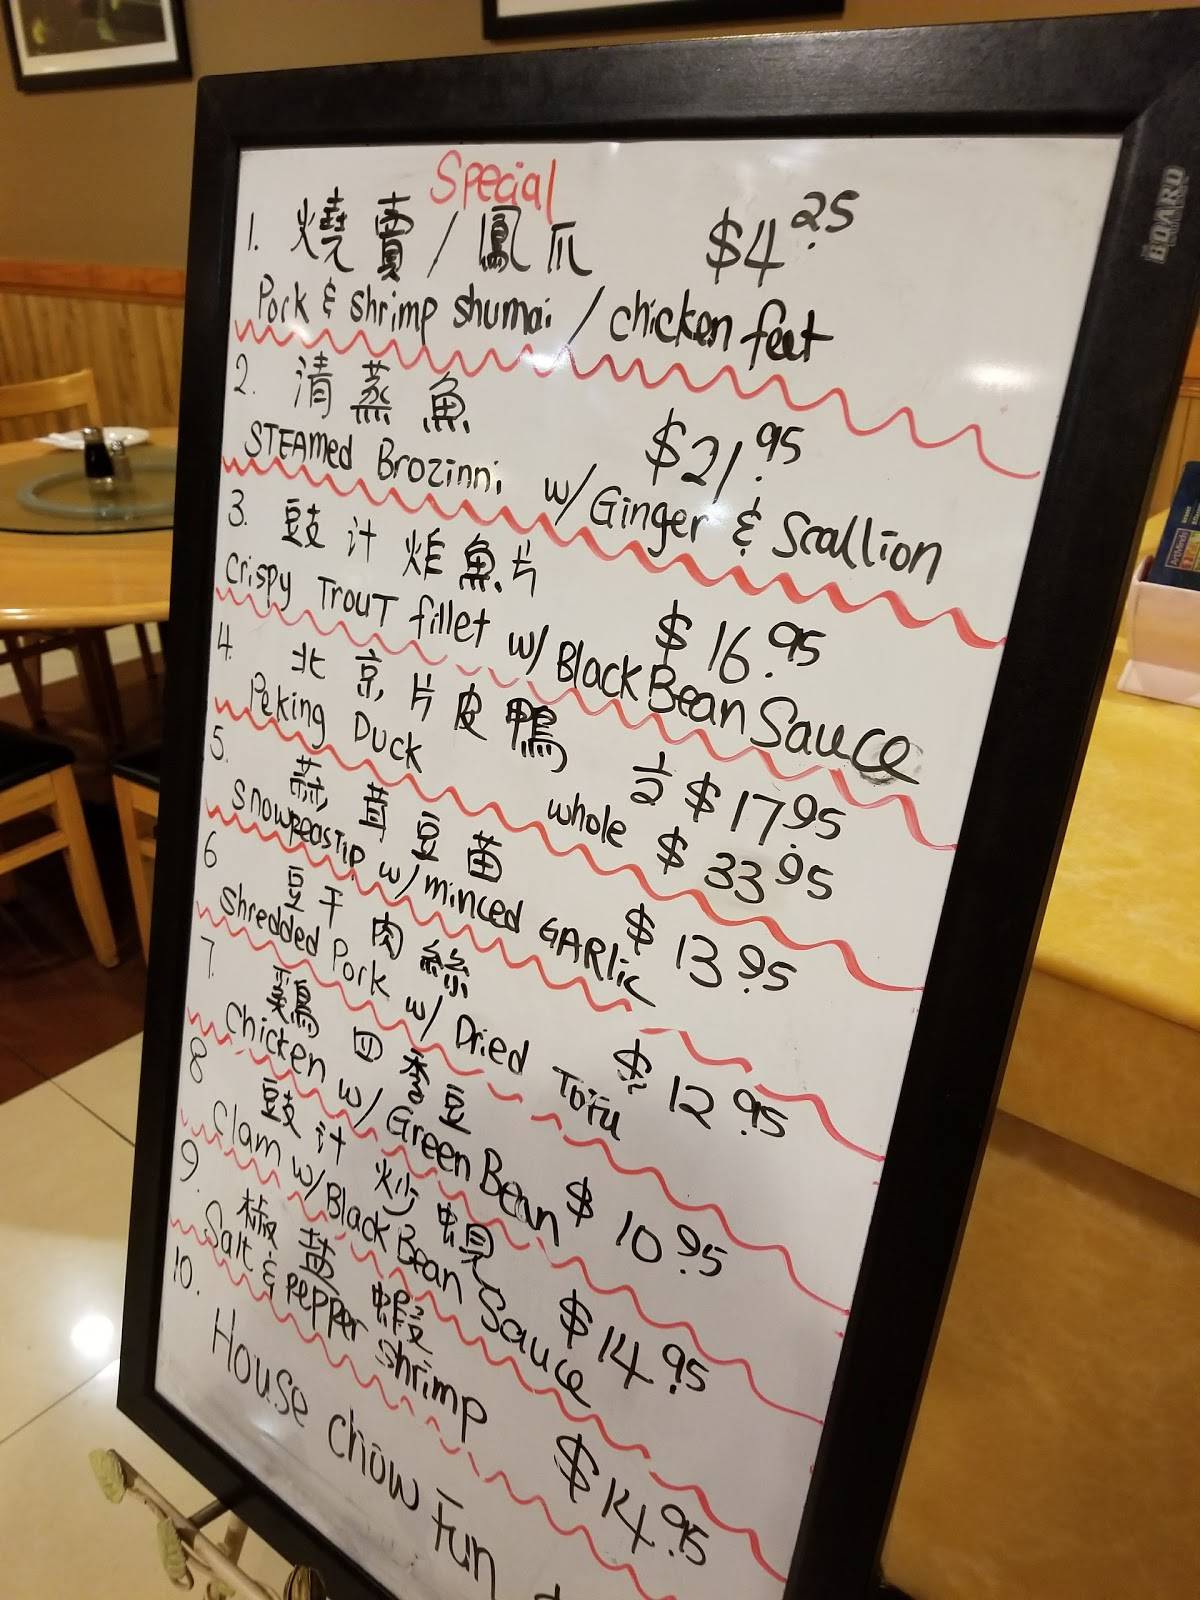 Special
1. 燒賣/鳳爪 $4.25
Pork & shrimp shumai / chicken feet
2. 清蒸魚 $21.95
STEAMed Brozinni w/ Ginger & Scallion
3. 豉汁炸魚片 $16.95
Crispy TrouT fillet w/ Black Bean Sauce
4. 北京片皮鴨 1/2 $17.95
Peking Duck whole $33.95
5. 蒜茸豆苗 $13.95
Snowpeastip w/ minced GARlic
6 豆干肉絲 $12.95
Shredded Pork w/ Dried Tofu
7. 雞四季豆 $10.95
Chicken w/ Green Bean
8 豉汁炒蜆 $14.95
Clam w/ Black Bean Sauce
9. 椒盐蝦 $14.95
Salt & Pepper Shrimp
10. House chow Fun
BOARD